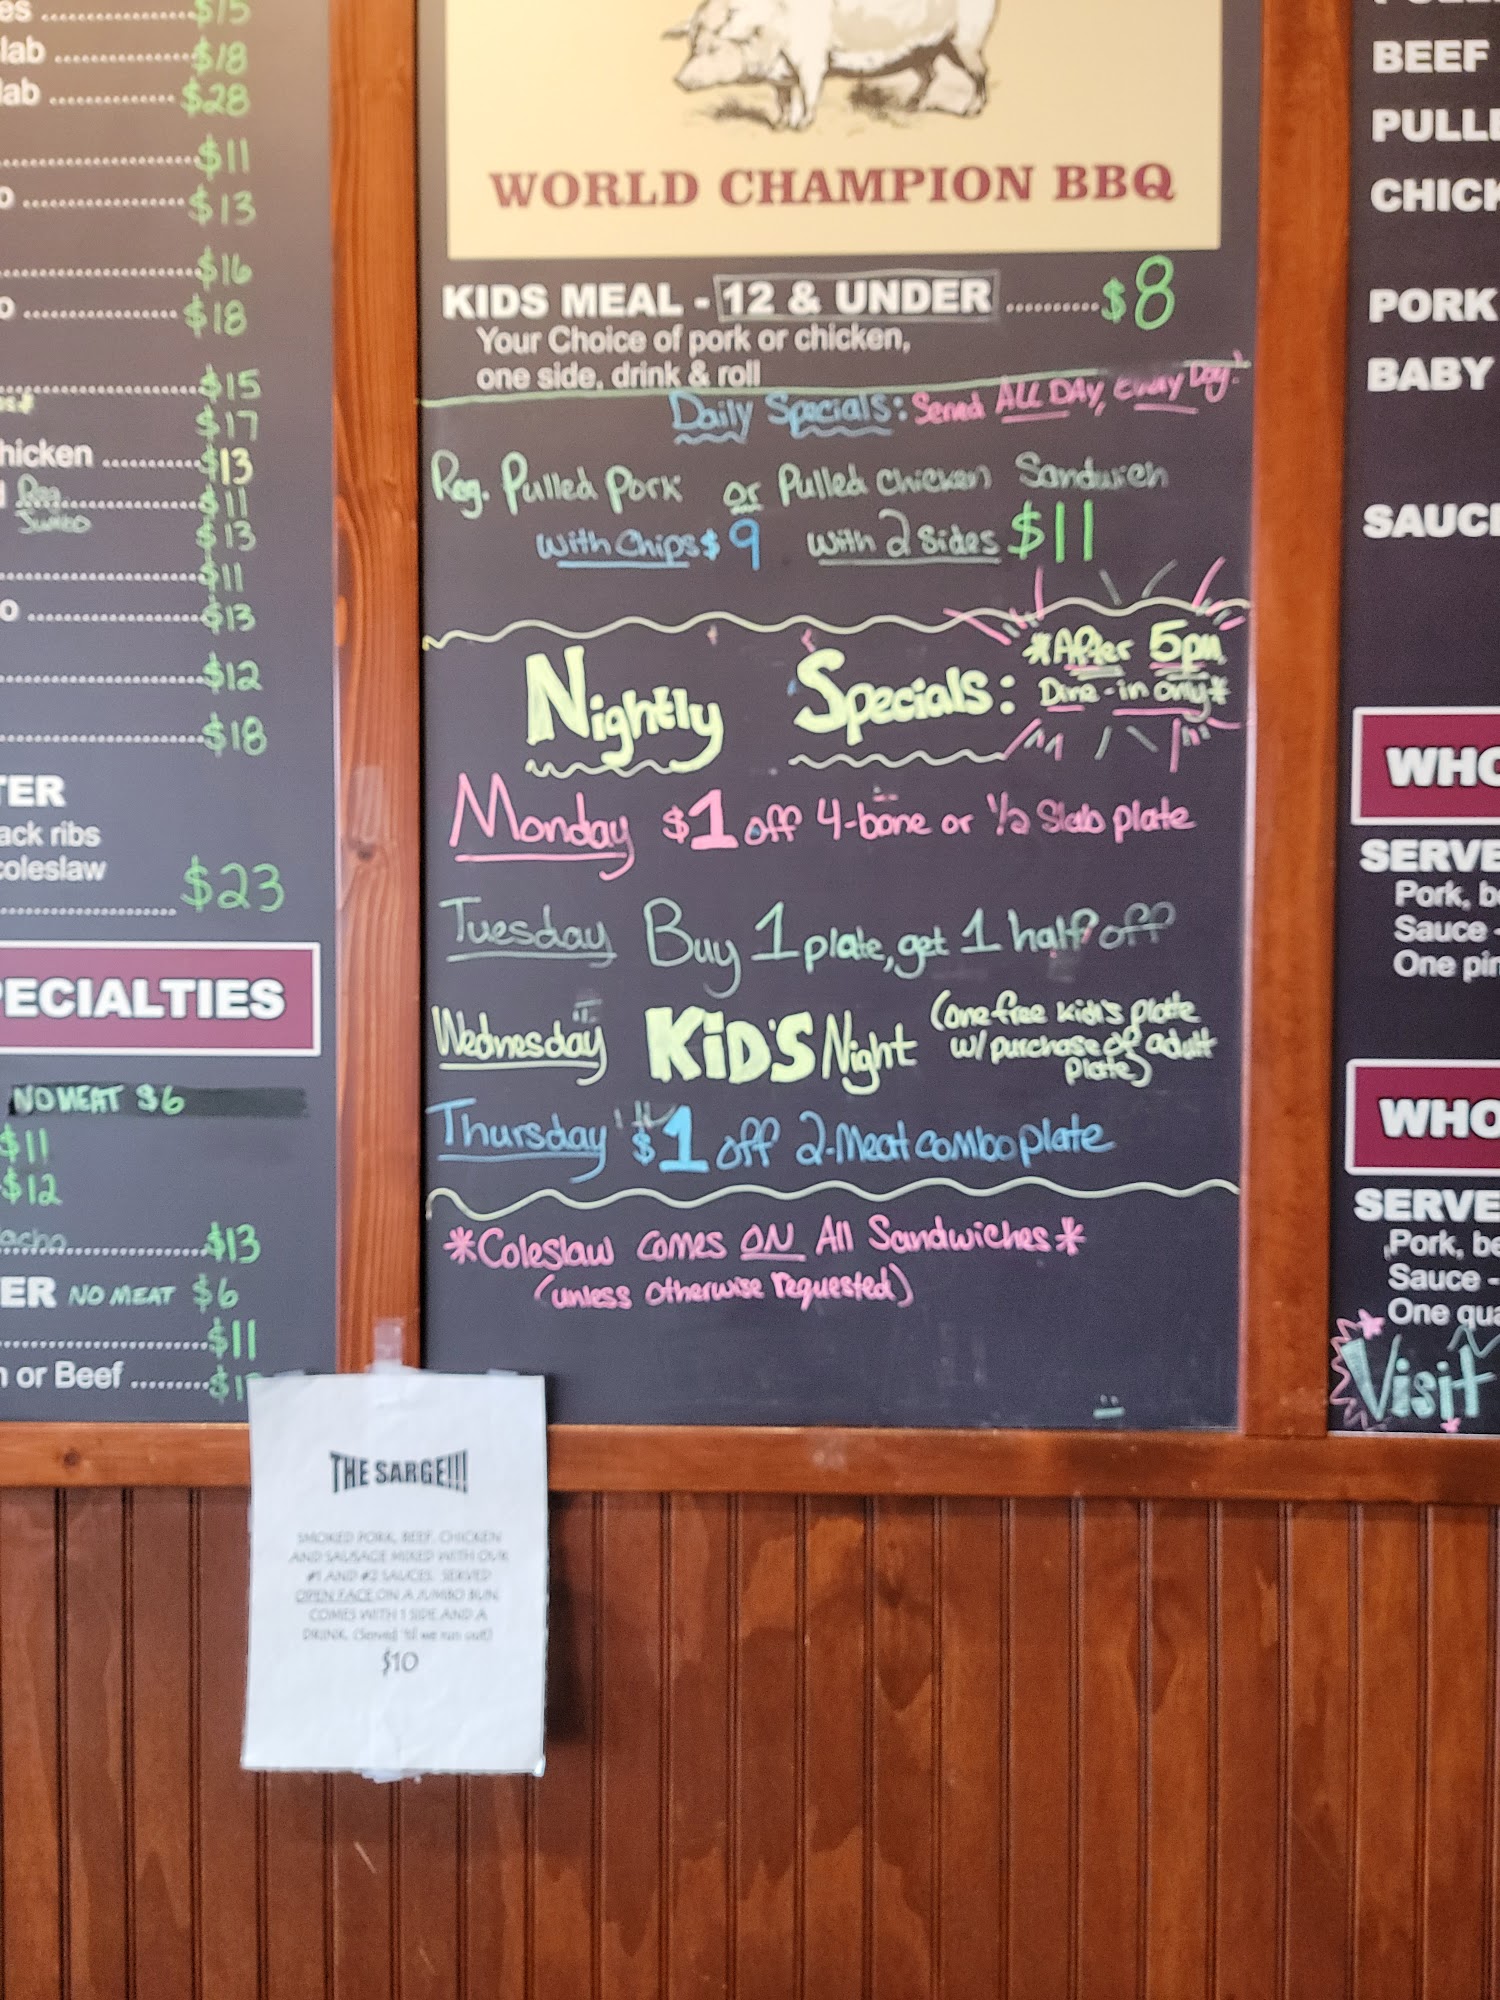 $15
lab ............... $18
lab ............... $28
$11
$13
$16
$18
$15
$17
hicken .......... $13
Reg $11
Jumbo $13
$11
$13
$12
$18
TER
ack ribs
coleslaw
$23
PECIALTIES
NO MEAT $6
$11
$12
acho $13
ER NO MEAT $6
$11
or Beef .........
WORLD CHAMPION BBQ
KIDS MEAL - 12 & UNDER .......... $8
Your Choice of pork or chicken,
one side, drink & roll
Daily Specials: Served ALL DAY, Every Day!
Reg. Pulled Pork or Pulled Chicken Sandwich
with Chips $9 with 2 sides $11
Nightly Specials: *After 5pm
Dine-in only*
Monday $1 off 4-bone or 1/2 Slab plate
Tuesday Buy 1 plate, get 1 half off
Wednesday KiD'S Night (one free kid's plate
w/ purchase of adult
plate)
Thursday $1 off 2-Meat combo plate
*Coleslaw comes ON All Sandwiches*
(unless otherwise requested)
BEEF
PULL
CHICK
PORK
BABY
SAUC
WHO
SERVE
Pork, b
Sauce -
One pin
WHO
SERVE
Pork, be
Sauce -
One qua
Visit
THE SARGE!!!
SMOKED PORK, BEEF, CHICKEN
AND SAUSAGE MIXED WITH OUR
#1 AND #2 SAUCES. SERVED
OPEN FACE ON A JUMBO BUN.
COMES WITH 1 SIDE AND A
DRINK. (Served 'til we run out)
$10